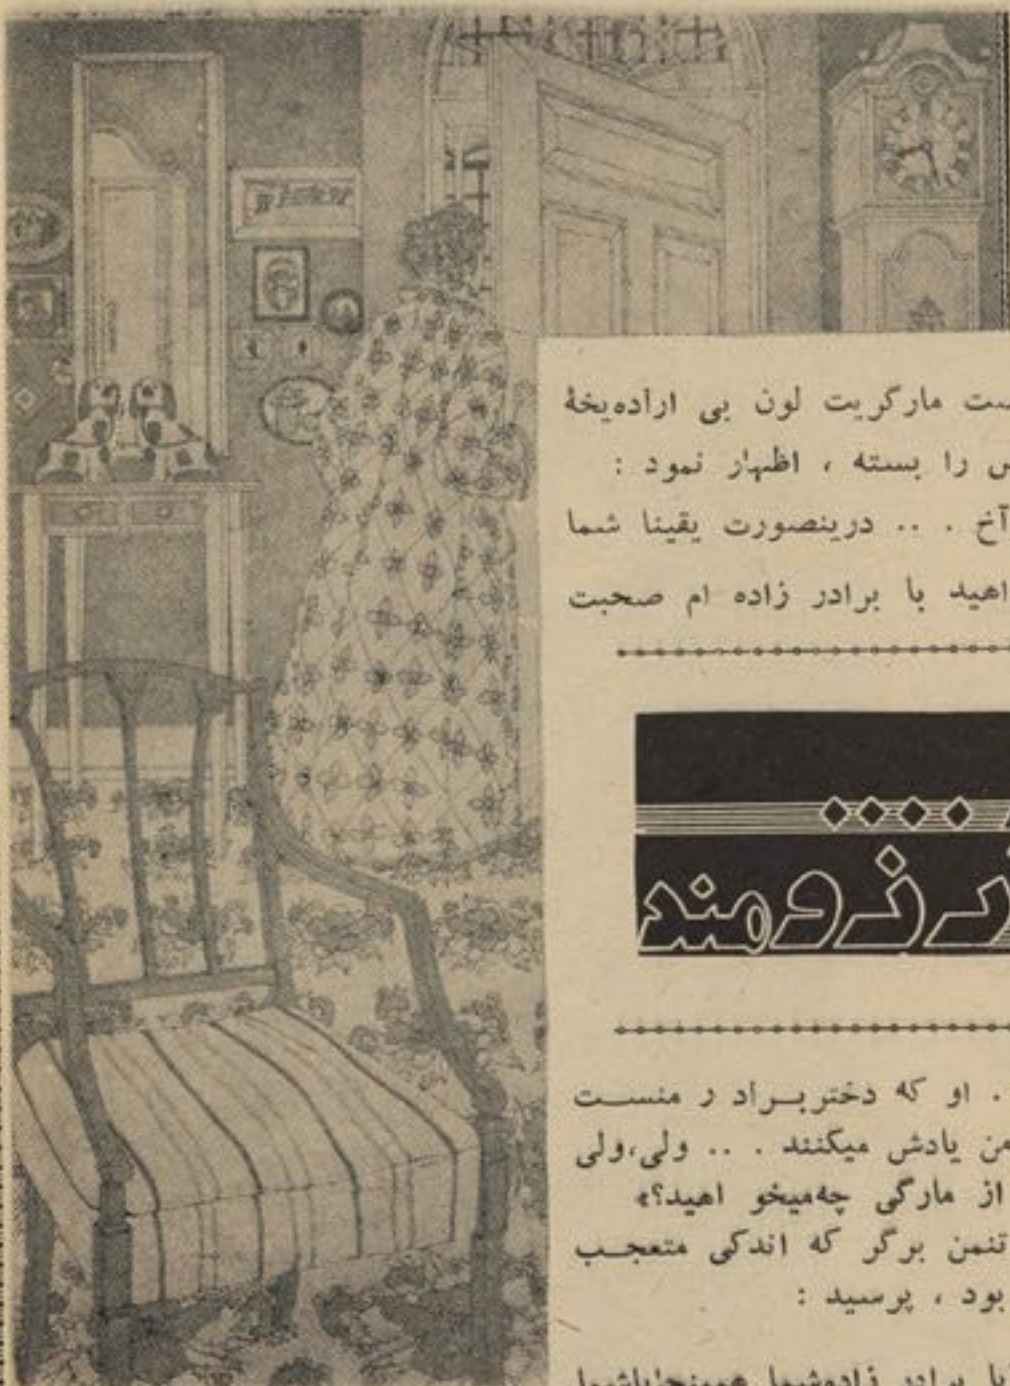 مارگریت لون بی اراده یخهٔ
را بسته ، اظهار نمود :
آخ . .. درینصورت یقینا شما
اهید با برادر زاده ام صحبت
رزومند
. او که دختر بــراد ر منســت
من یادش میکنند . .. ولی،ولی
از مارگی چه‌میخو اهید؟»
تنمن برگر که اندکی متعجــب
بود ، پرسید :
برادر زاده‌شما